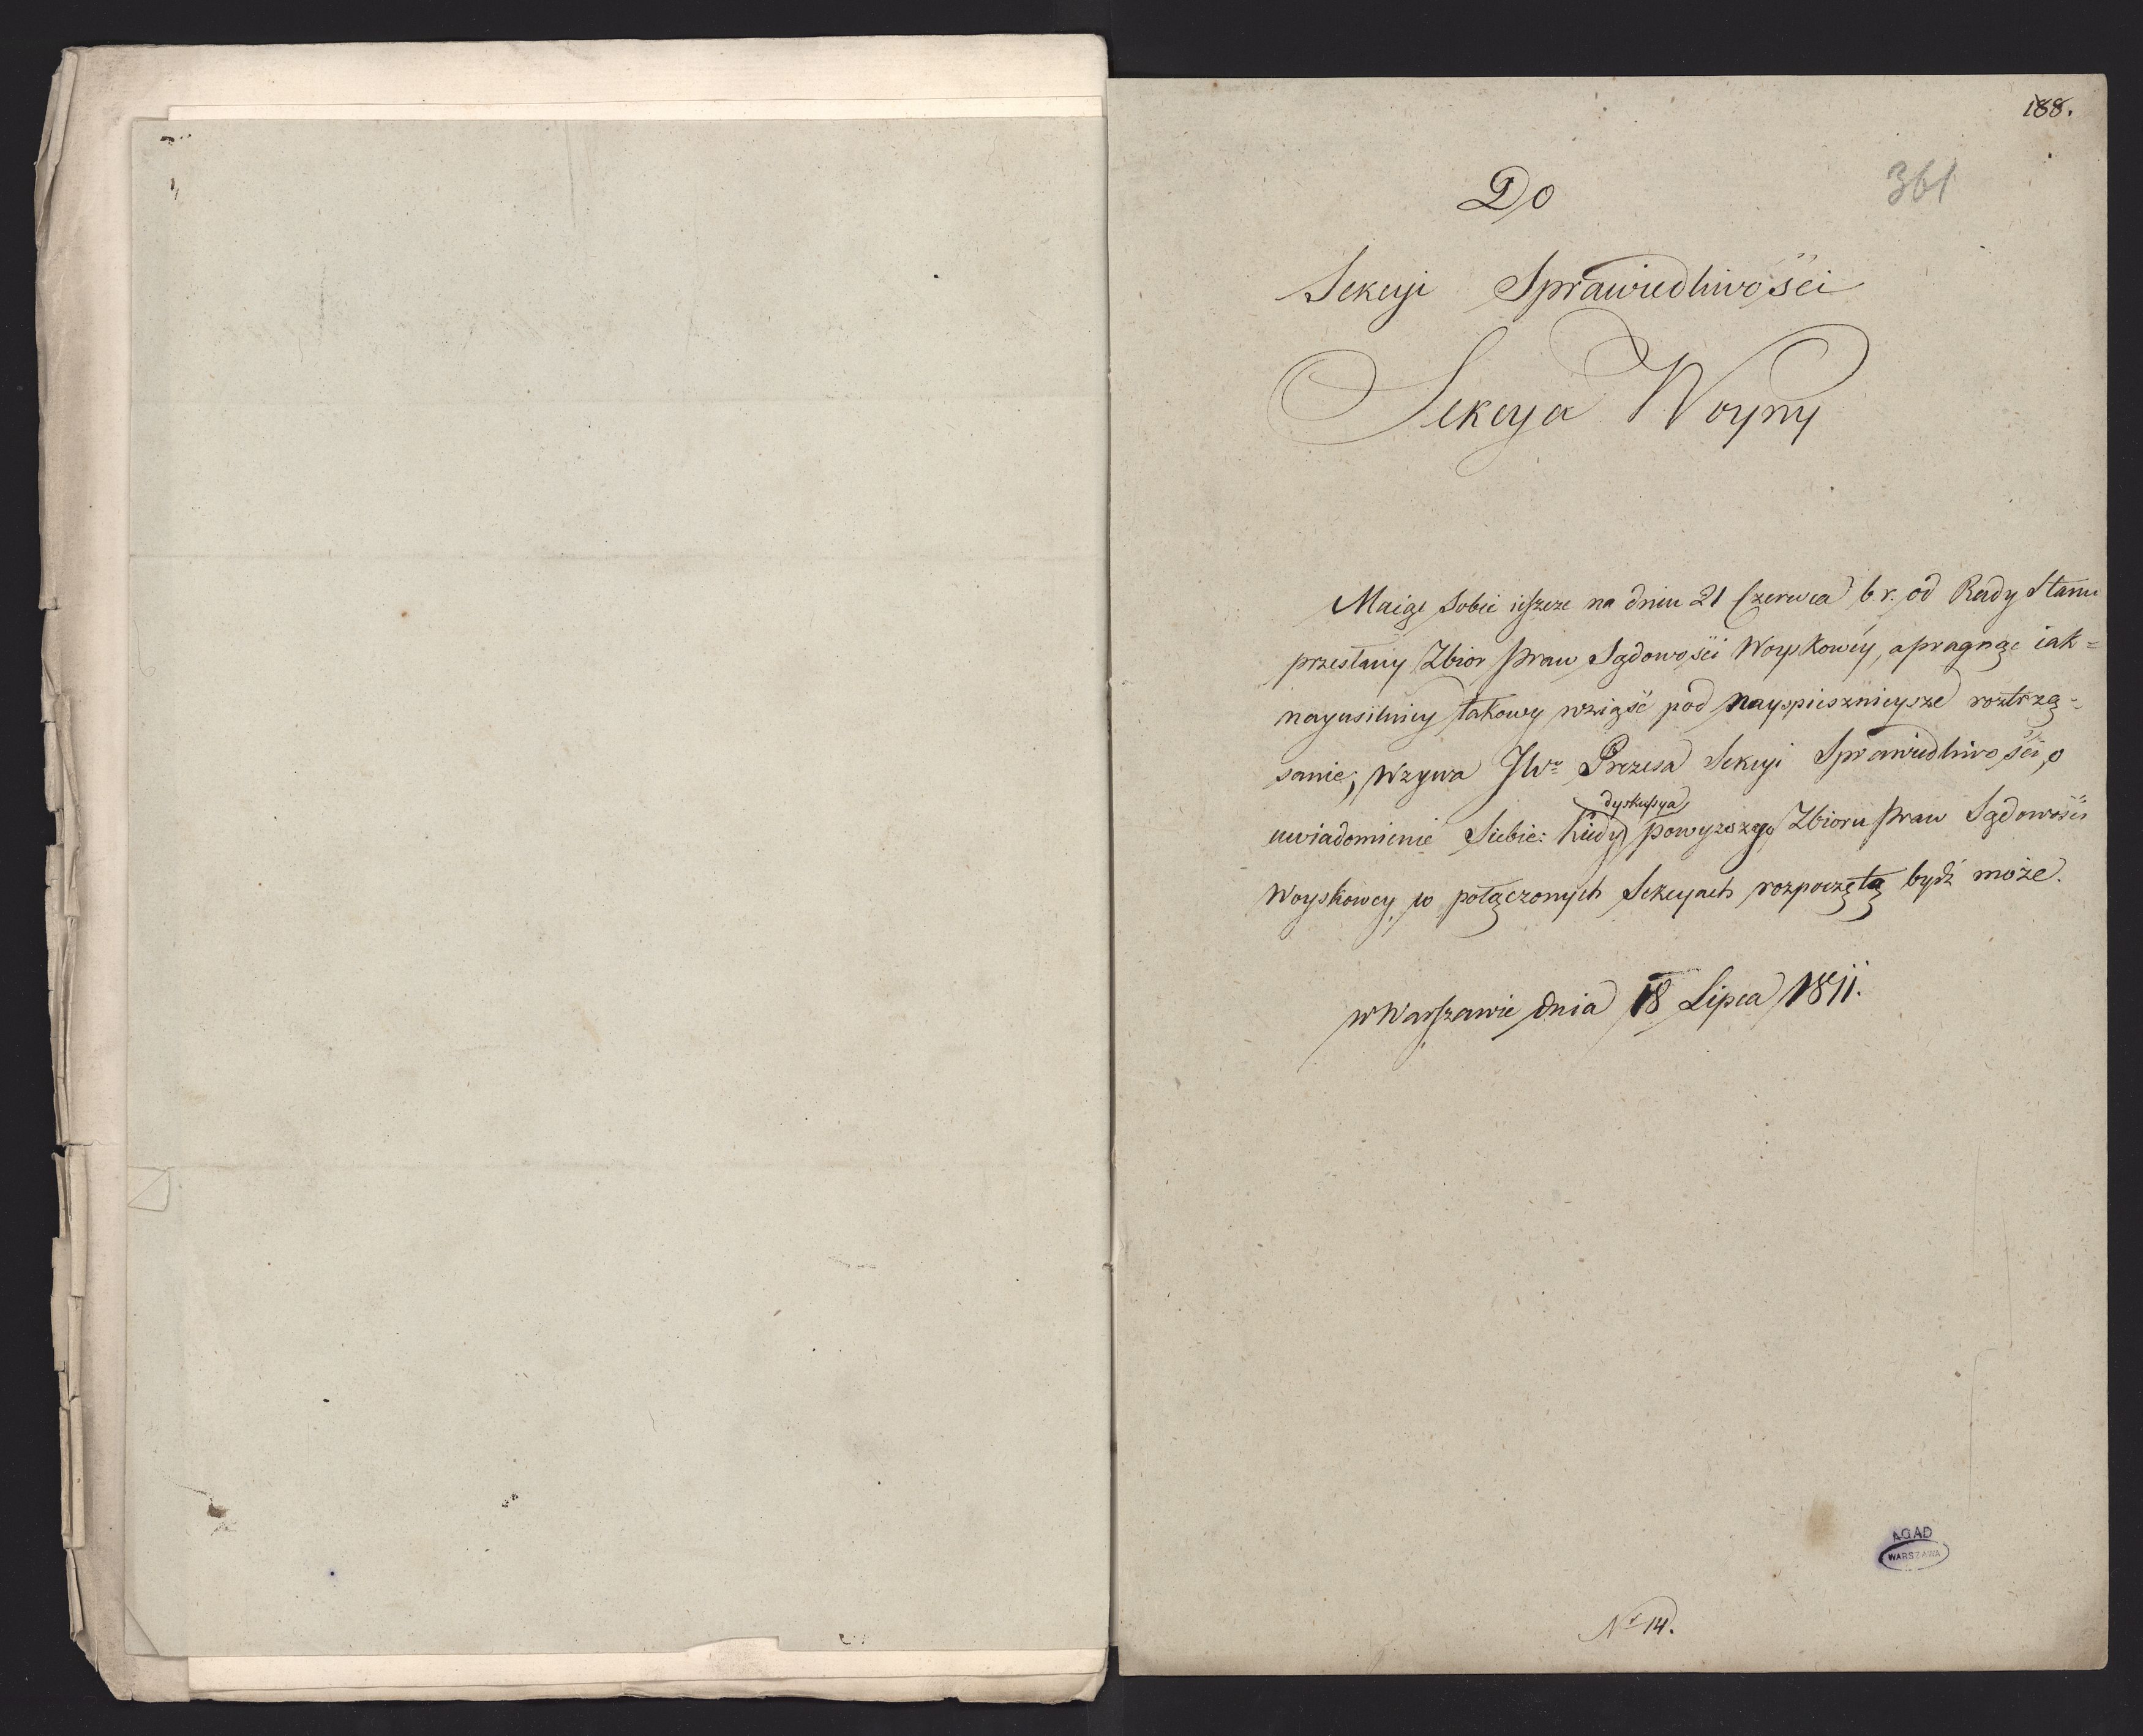 188.
361
Do
Sekcyi Sprawiedliwości
Sekcya Woyny
Maiąc sobie ieszcze na dniu 21 Czerwca b. r. od Rady Stanu
przesłany Zbior Praw Sądowości Woyskowéy, a pragnąc iak=
nayusilniey takowy wziąść pod nayspiesznieysze roztrzą=
sanie, Wzywa JWo Prezesa Sekcyi Sprawiedliwości, o
dyskussya
uwiadomienie Siebie: kiedy powyższego Zbioru Praw Sądowości
Woyskowey w połączonych Sekcyach rozpoczętą bydź może.
w Warszawie dnia 18 Lipca 1811.
AGAD
WARSZAWA
Nr 14.